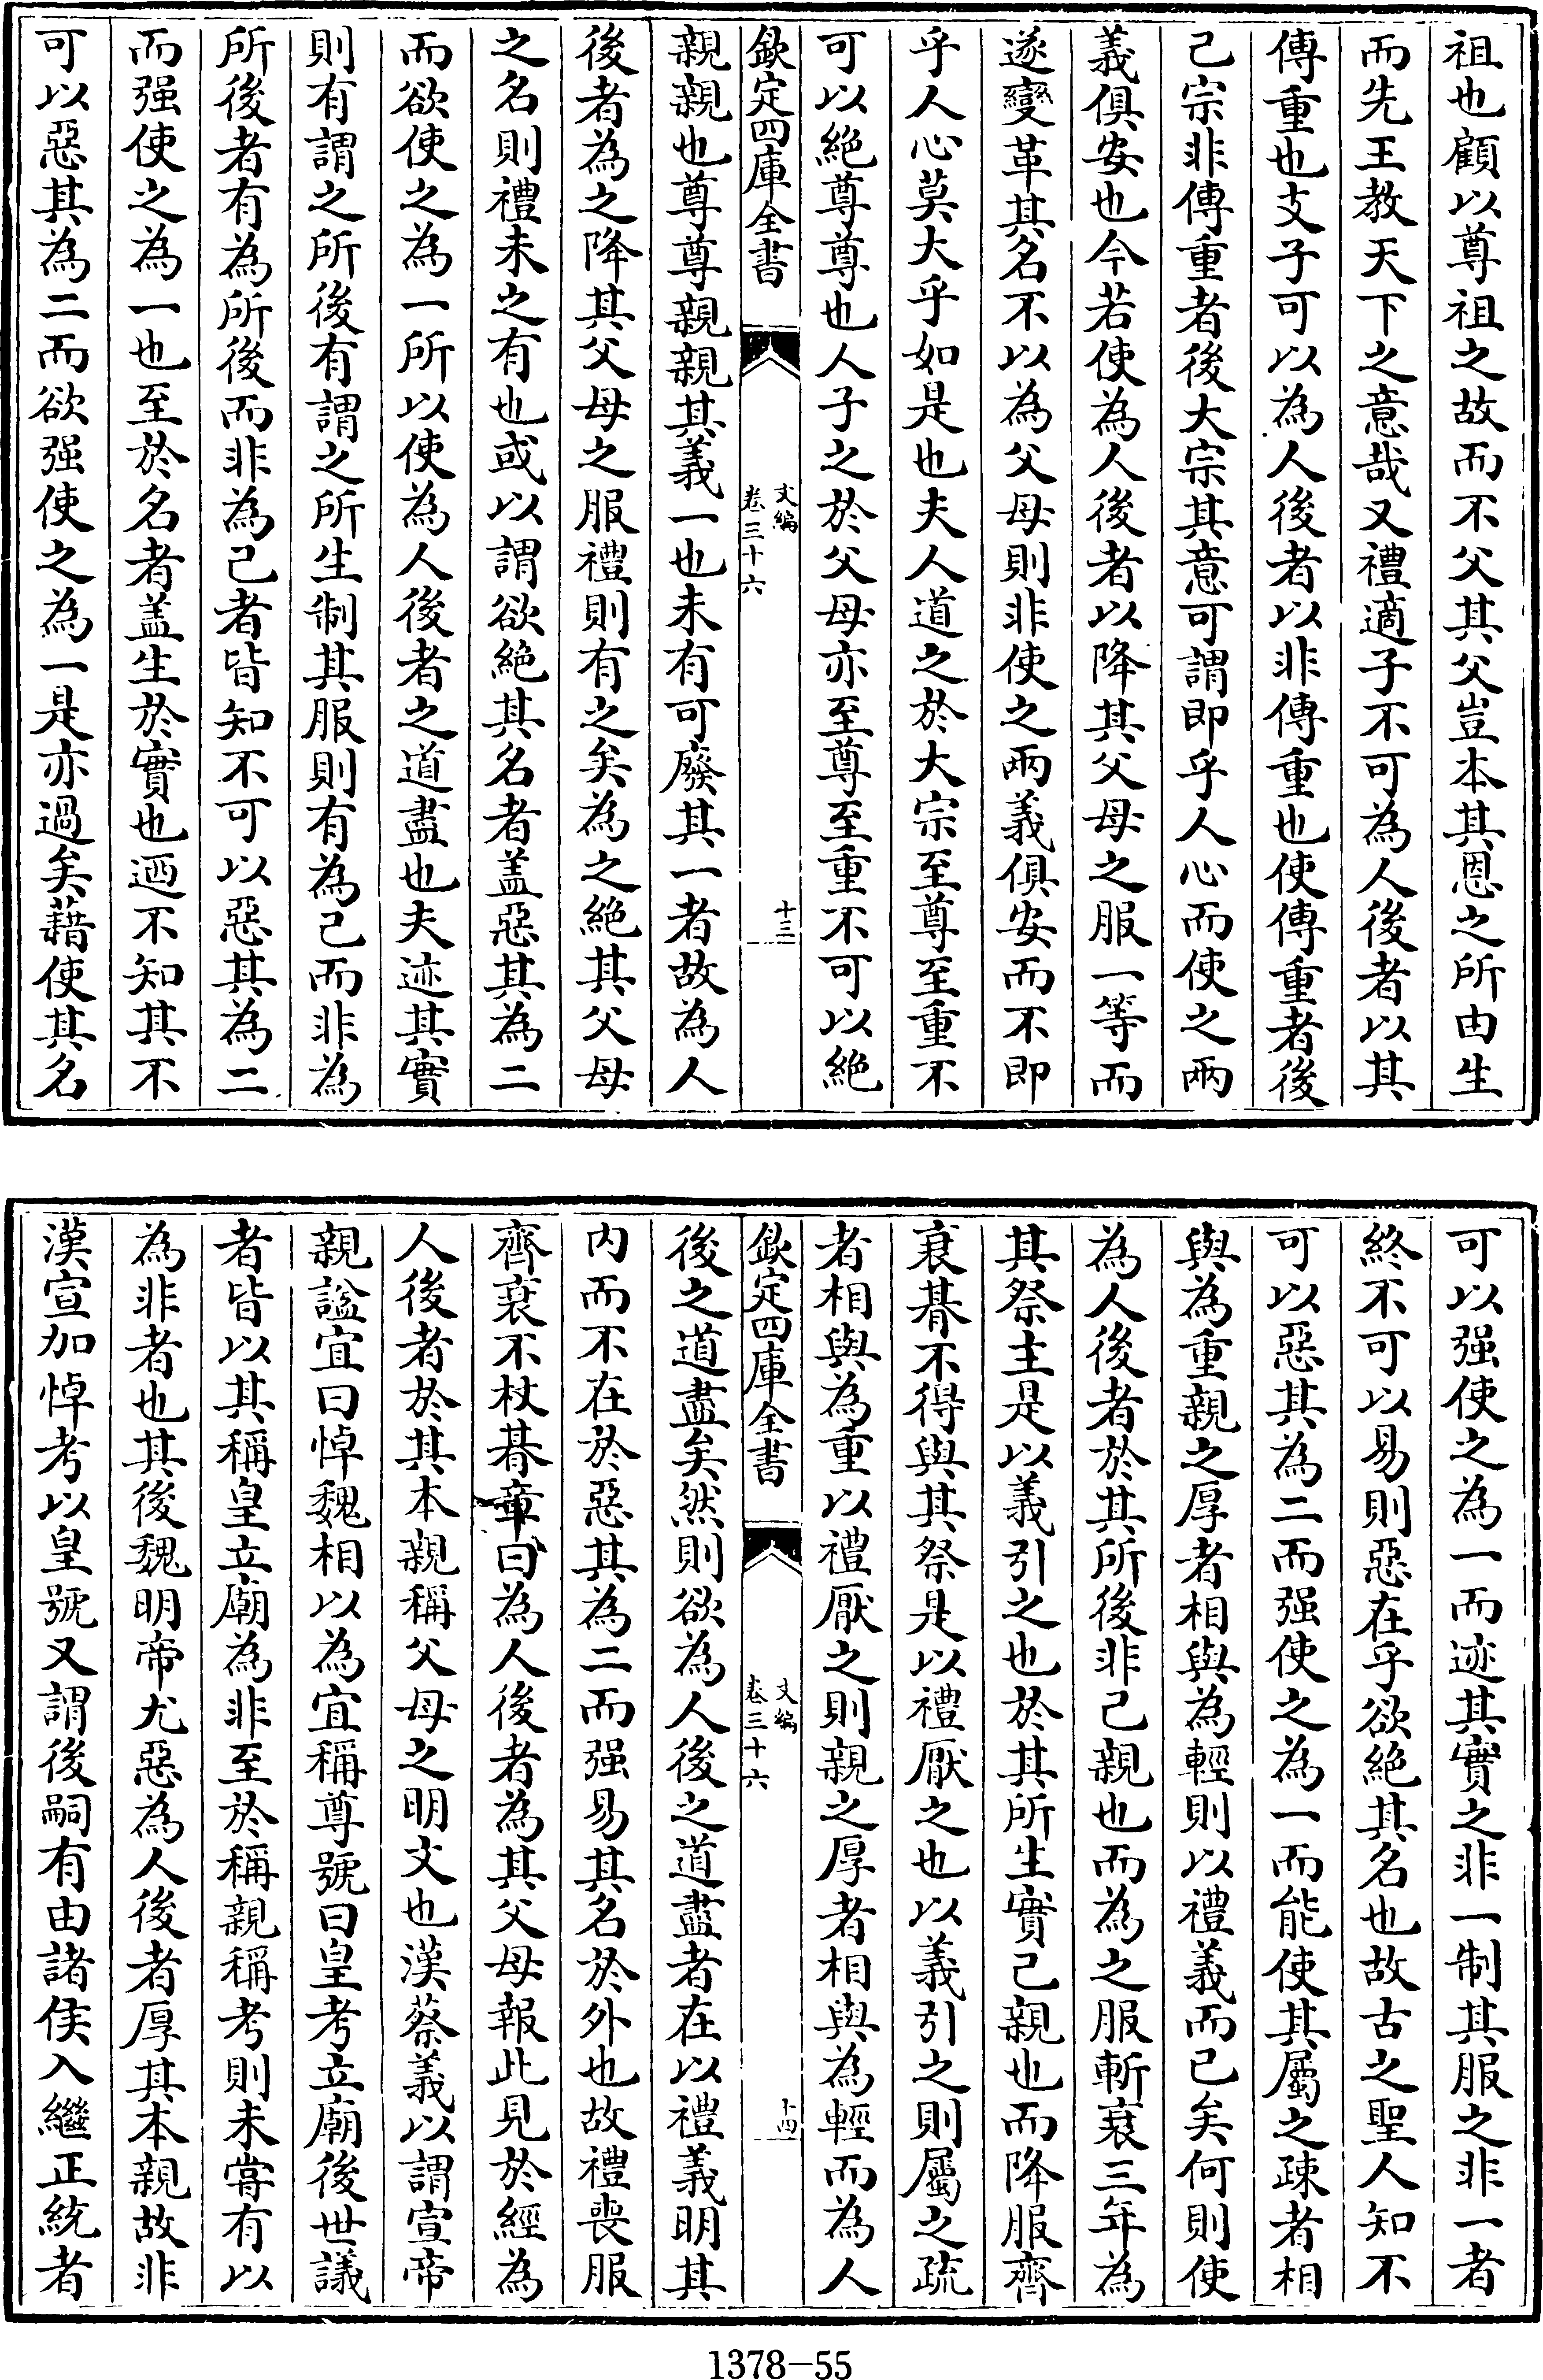 祖也顧以尊祖之故而不父其父豈本其恩之所由生
而先王教天下之意哉又禮適子不可為人後者以其
傳重也支子可以為人後者以非傳重也使傳重者後
己宗非傳重者後大宗其意可謂即乎人心而使之兩
義俱安也今若使為人後者以降其父母之服一等而
遂變革其名不以為父母則非使之兩義俱安而不即
乎人心莫大乎如是也夫人道之於大宗至尊至重不
可以絶尊尊也人子之於父母亦至尊至重不可以絶
欽定四庫全書
文編
卷三十六
十三
親親也尊尊親親其義一也未有可廢其一者故為人
後者為之降其父母之服禮則有之矣為之絶其父母
之名則禮未之有也或以謂欲絶其名者盖惡其為二
而欲使之為一所以使為人後者之道盡也夫迹其實
則有謂之所後有謂之所生制其服則有為己而非為
所後者有為所後而非為己者皆知不可以惡其為二
而强使之為一也至於名者盖生於實也廼不知其不
可以惡其為二而欲强使之為一是亦過矣藉使其名
可以强使之為一而迹其實之非一制其服之非一者
終不可以易則惡在乎欲絶其名也故古之聖人知不
可以惡其為二而强使之為一而能使其屬之疎者相
與為重親之厚者相與為輕則以禮義而已矣何則使
為人後者於其所後非己親也而為之服斬衰三年為
其祭主是以義引之也於其所生實己親也而降服齊
衰朞不得與其祭是以禮厭之也以義引之則屬之疏
者相與為重以禮厭之則親之厚者相與為輕而為人
欽定四庫全書
文編
卷三十六
十四
後之道盡矣然則欲為人後之道盡者在以禮義明其
内而不在於惡其為二而强易其名於外也故禮喪服
齊衰不杖朞章曰為人後者為其父母報此見於經為
人後者於其本親稱父母之明文也漢蔡義以謂宣帝
親諡宜曰悼魏相以為宜稱尊號曰皇考立廟後世議
者皆以其稱皇立廟為非至於稱親稱考則未甞有以
為非者也其後魏明帝尤惡為人後者厚其本親故非
漢宣加悼考以皇號又謂後嗣有由諸侯入繼正統者
1378-55